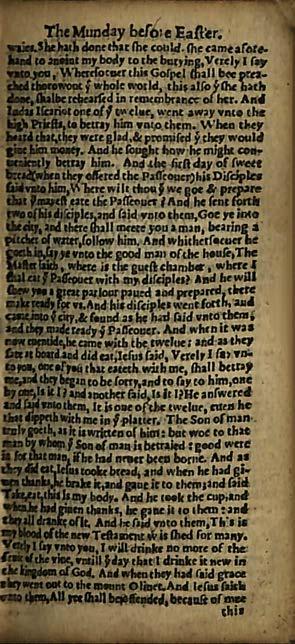 The Munday before Easter.
waies. She hath done that she could. she came afore-
hand to anoint my body to the burying, Verely I say
vnto you, Wheresoeuer this Gospel shall bee prea-
ched thorowout yͤ whole world, this also yͭ she hath
done, shalbe rehearsed in remembrance of her. And
Iudas Iscariot one of yͤ twelue, went away vnto the
high Priests, to betray him vnto them. When they
heard that, they were glad, & promised yͭ they would
giue him money. And he sought how he might con-
ueniently betray him. And the first day of sweet
bread (when they offered the Passeouer) his Disciples
said vnto him, Where wilt thou yͭ we goe & prepare
that yͧ mayest eate the Passeouer? And he sent forth
two of his disciples, and said vnto them, Goe ye into
the city, and there shall meete you a man, bearing a
pitcher of water, follow him. And whithersoeuer he
goeth in, say ye vnto the good man of the house, The
Master saith, where is the guest chamber, where I
shal eat yͤ Passeouer with my disciples? And he will
shew you a great parlour paued and prepared, there
make ready for vs. And his disciples went forth, and
came into yͤ city, & found as he had said vnto them,
and they made ready yͤ Passeouer. And when it was
now euentide, he came with the twelue: and as they
sate at boord and did eat, Iesus said, Verely I say vn-
to you, one of you that eateth with me, shall betray
me, and they began to be sorry, and to say to him, one
by one, Is it I? and another said, Is it I? He answered
and said vnto them, It is one of the twelue, euen he
that dippeth with me in yͤ platter. The Son of man
truly goeth, as it is written of him: but woe to that
man by whom yͤ Son of man is betraied: good were
it for that man, if he had neuer been borne. And as
they did eat, Iesus tooke bread, and when he had gi-
uen thanks, he brake it, and gaue it to them, and said
Take, eat, this is my body. And he took the cup, and
when he had giuen thanks, he gaue it to them: and
they all dranke of it. And he said vnto them, This is
my blood of the new Testament wͨ is shed for many.
Verely I say vnto you, I will drinke no more of the
fruit of the vine, vntill yͭ day that I drinke it new in
the kingdom of God. And when they had said grace
they went out to the mount Oliuet. And Iesus saith
vnto them, All yee shall be offended, because of mee
this